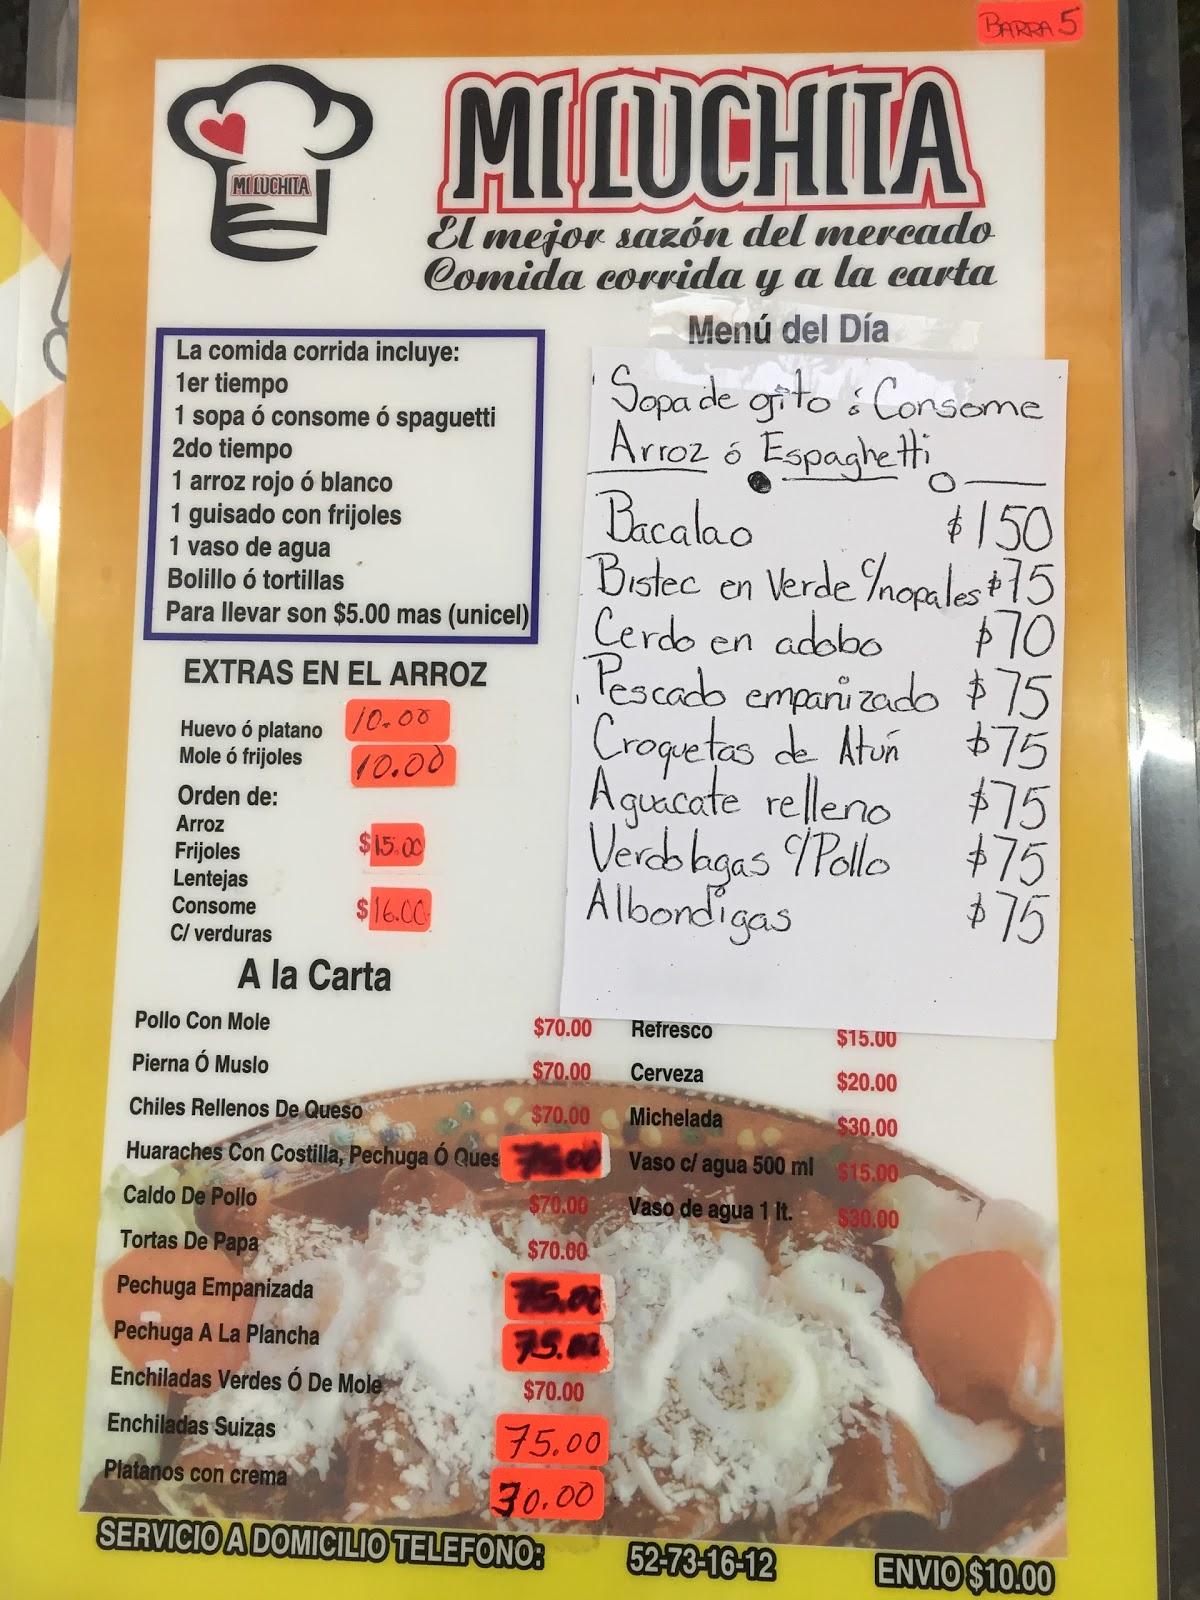 BARRA 5
MI LUCHITA
MI LUCHITA
El mejor sazón del mercado
Comida corrida y a la carta
La comida corrida incluye:
1er tiempo
1 sopa ó consome ó spaguetti
2do tiempo
1 arroz rojo ó blanco
1 guisado con frijoles
1 vaso de agua
Bolillo ó tortillas
Para llevar son $5.00 mas (unicel)
EXTRAS EN EL ARROZ
Huevo ó platano 10.00
Mole ó frijoles 10.00
Orden de:
Arroz
Frijoles $15.00
Lentejas
Consome $16.00
C/ verduras
Menú del Día
Sopa de gito ó Consome
Arroz ó Espaghetti
Bacalao $150
Bistec en Verde c/nopales $75
Cerdo en adobo $70
Pescado empanizado $75
Croquetas de Atún $75
Aguacate relleno $75
Verdolagas c/Pollo $75
Albondigas $75
A la Carta
Pollo Con Mole $70.00
Pierna Ó Muslo $70.00
Chiles Rellenos De Queso $70.00
Huaraches Con Costilla, Pechuga Ó Ques 75.00
Caldo De Pollo $70.00
Tortas De Papa $70.00
Pechuga Empanizada 75.00
Pechuga A La Plancha 75.00
Enchiladas Verdes Ó De Mole $70.00
Enchiladas Suizas 75.00
Platanos con crema 30.00
Refresco $15.00
Cerveza $20.00
Michelada $30.00
Vaso c/ agua 500 ml $15.00
Vaso de agua 1 lt. $30.00
SERVICIO A DOMICILIO TELEFONO: 52-73-16-12 ENVIO $10.00